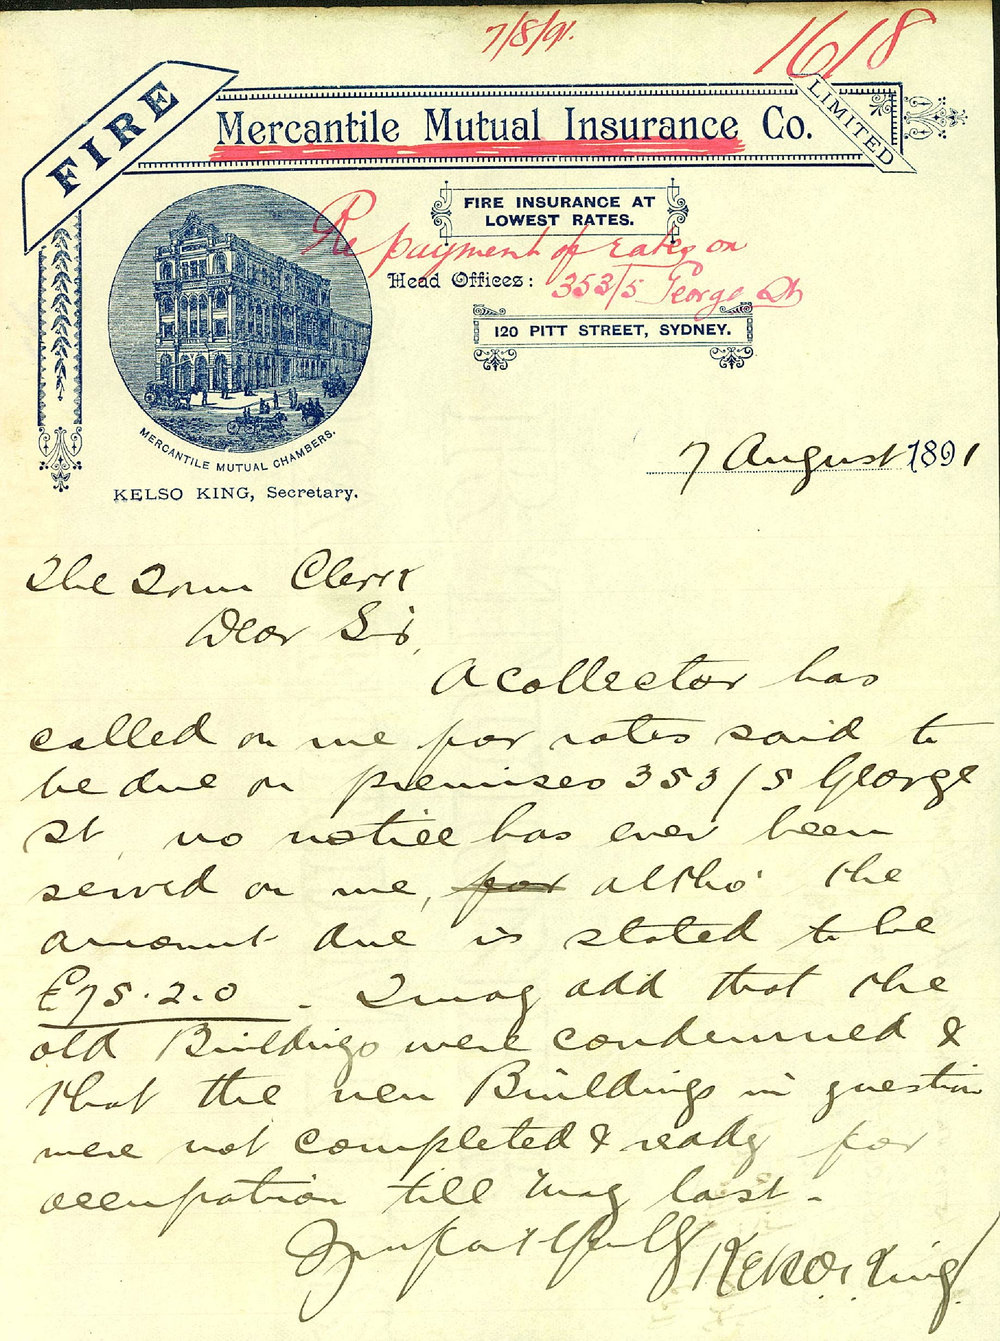 7/8/91.
1618
FIRE
Mercantile Mutual Insurance Co.
LIMITED
FIRE INSURANCE AT
LOWEST RATES.
Re payment of rates on
353/5 George St
Head Offices:
120 PITT STREET, SYDNEY.
MERCANTILE MUTUAL CHAMBERS.
KELSO KING, Secretary.
7 August 1891
The Town Clerk
Dear Sir,
A collector has
called on me for rates said to
be due on premises 353/5 George
St, no notice has ever been
served on me, for altho' the
amount due is stated to be
£75.2.0. I may add that the
old Buildings were condemned &
that the new Buildings in question
were not completed & ready for
occupation till May last.
Yours faithfully
Kelso King